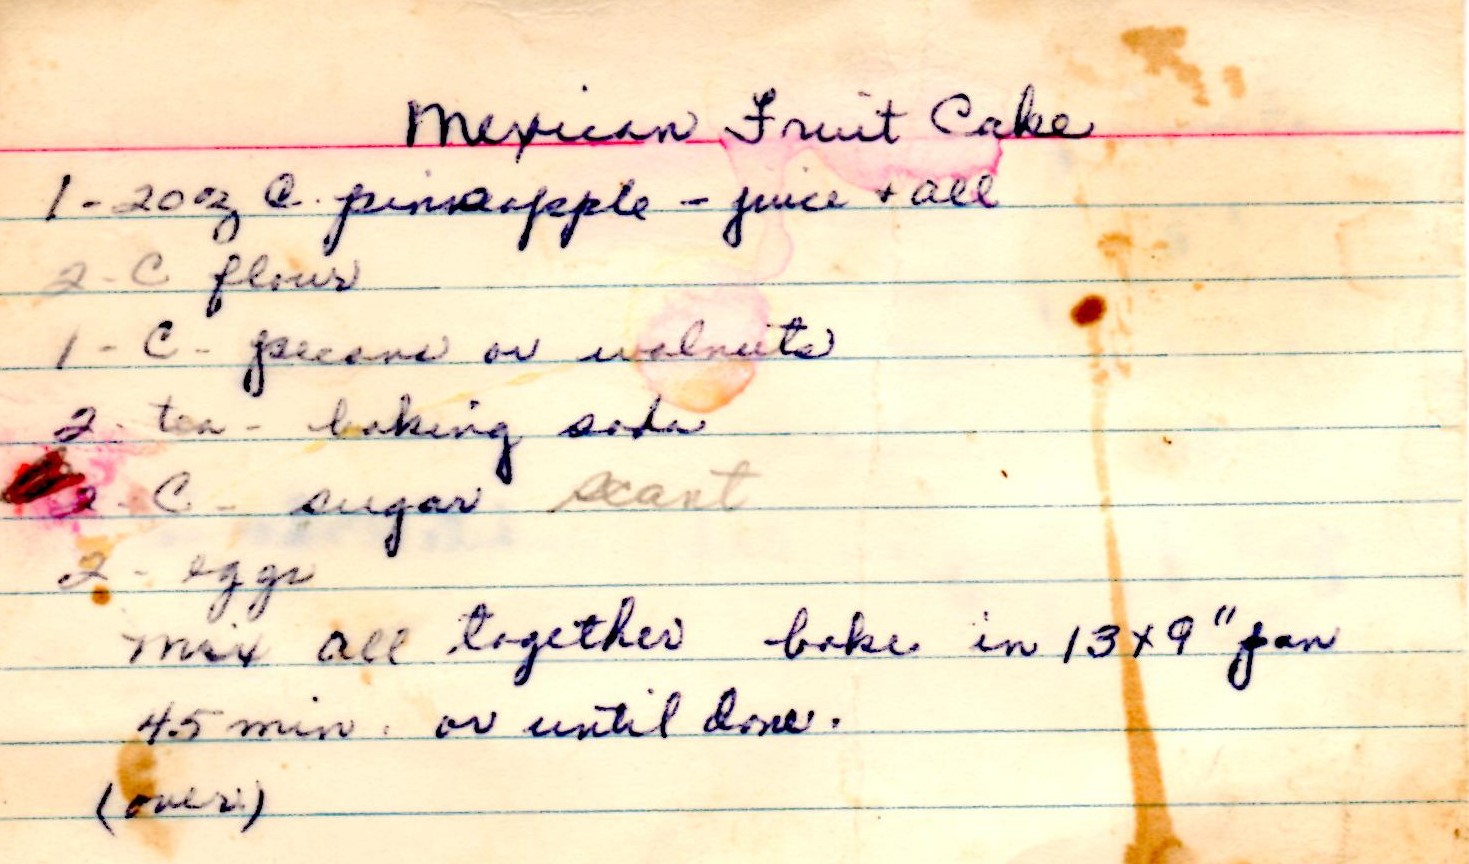 Mexican Fruit Cake
1 - 20 oz C. pineapple - juice + all
2 - C flour
1 - C - pecans or walnuts
2 - tea - baking soda
2 - C - sugar scant
2 - eggs
mix all together bake in 13 x 9" pan
45 min. or until done.
(over)